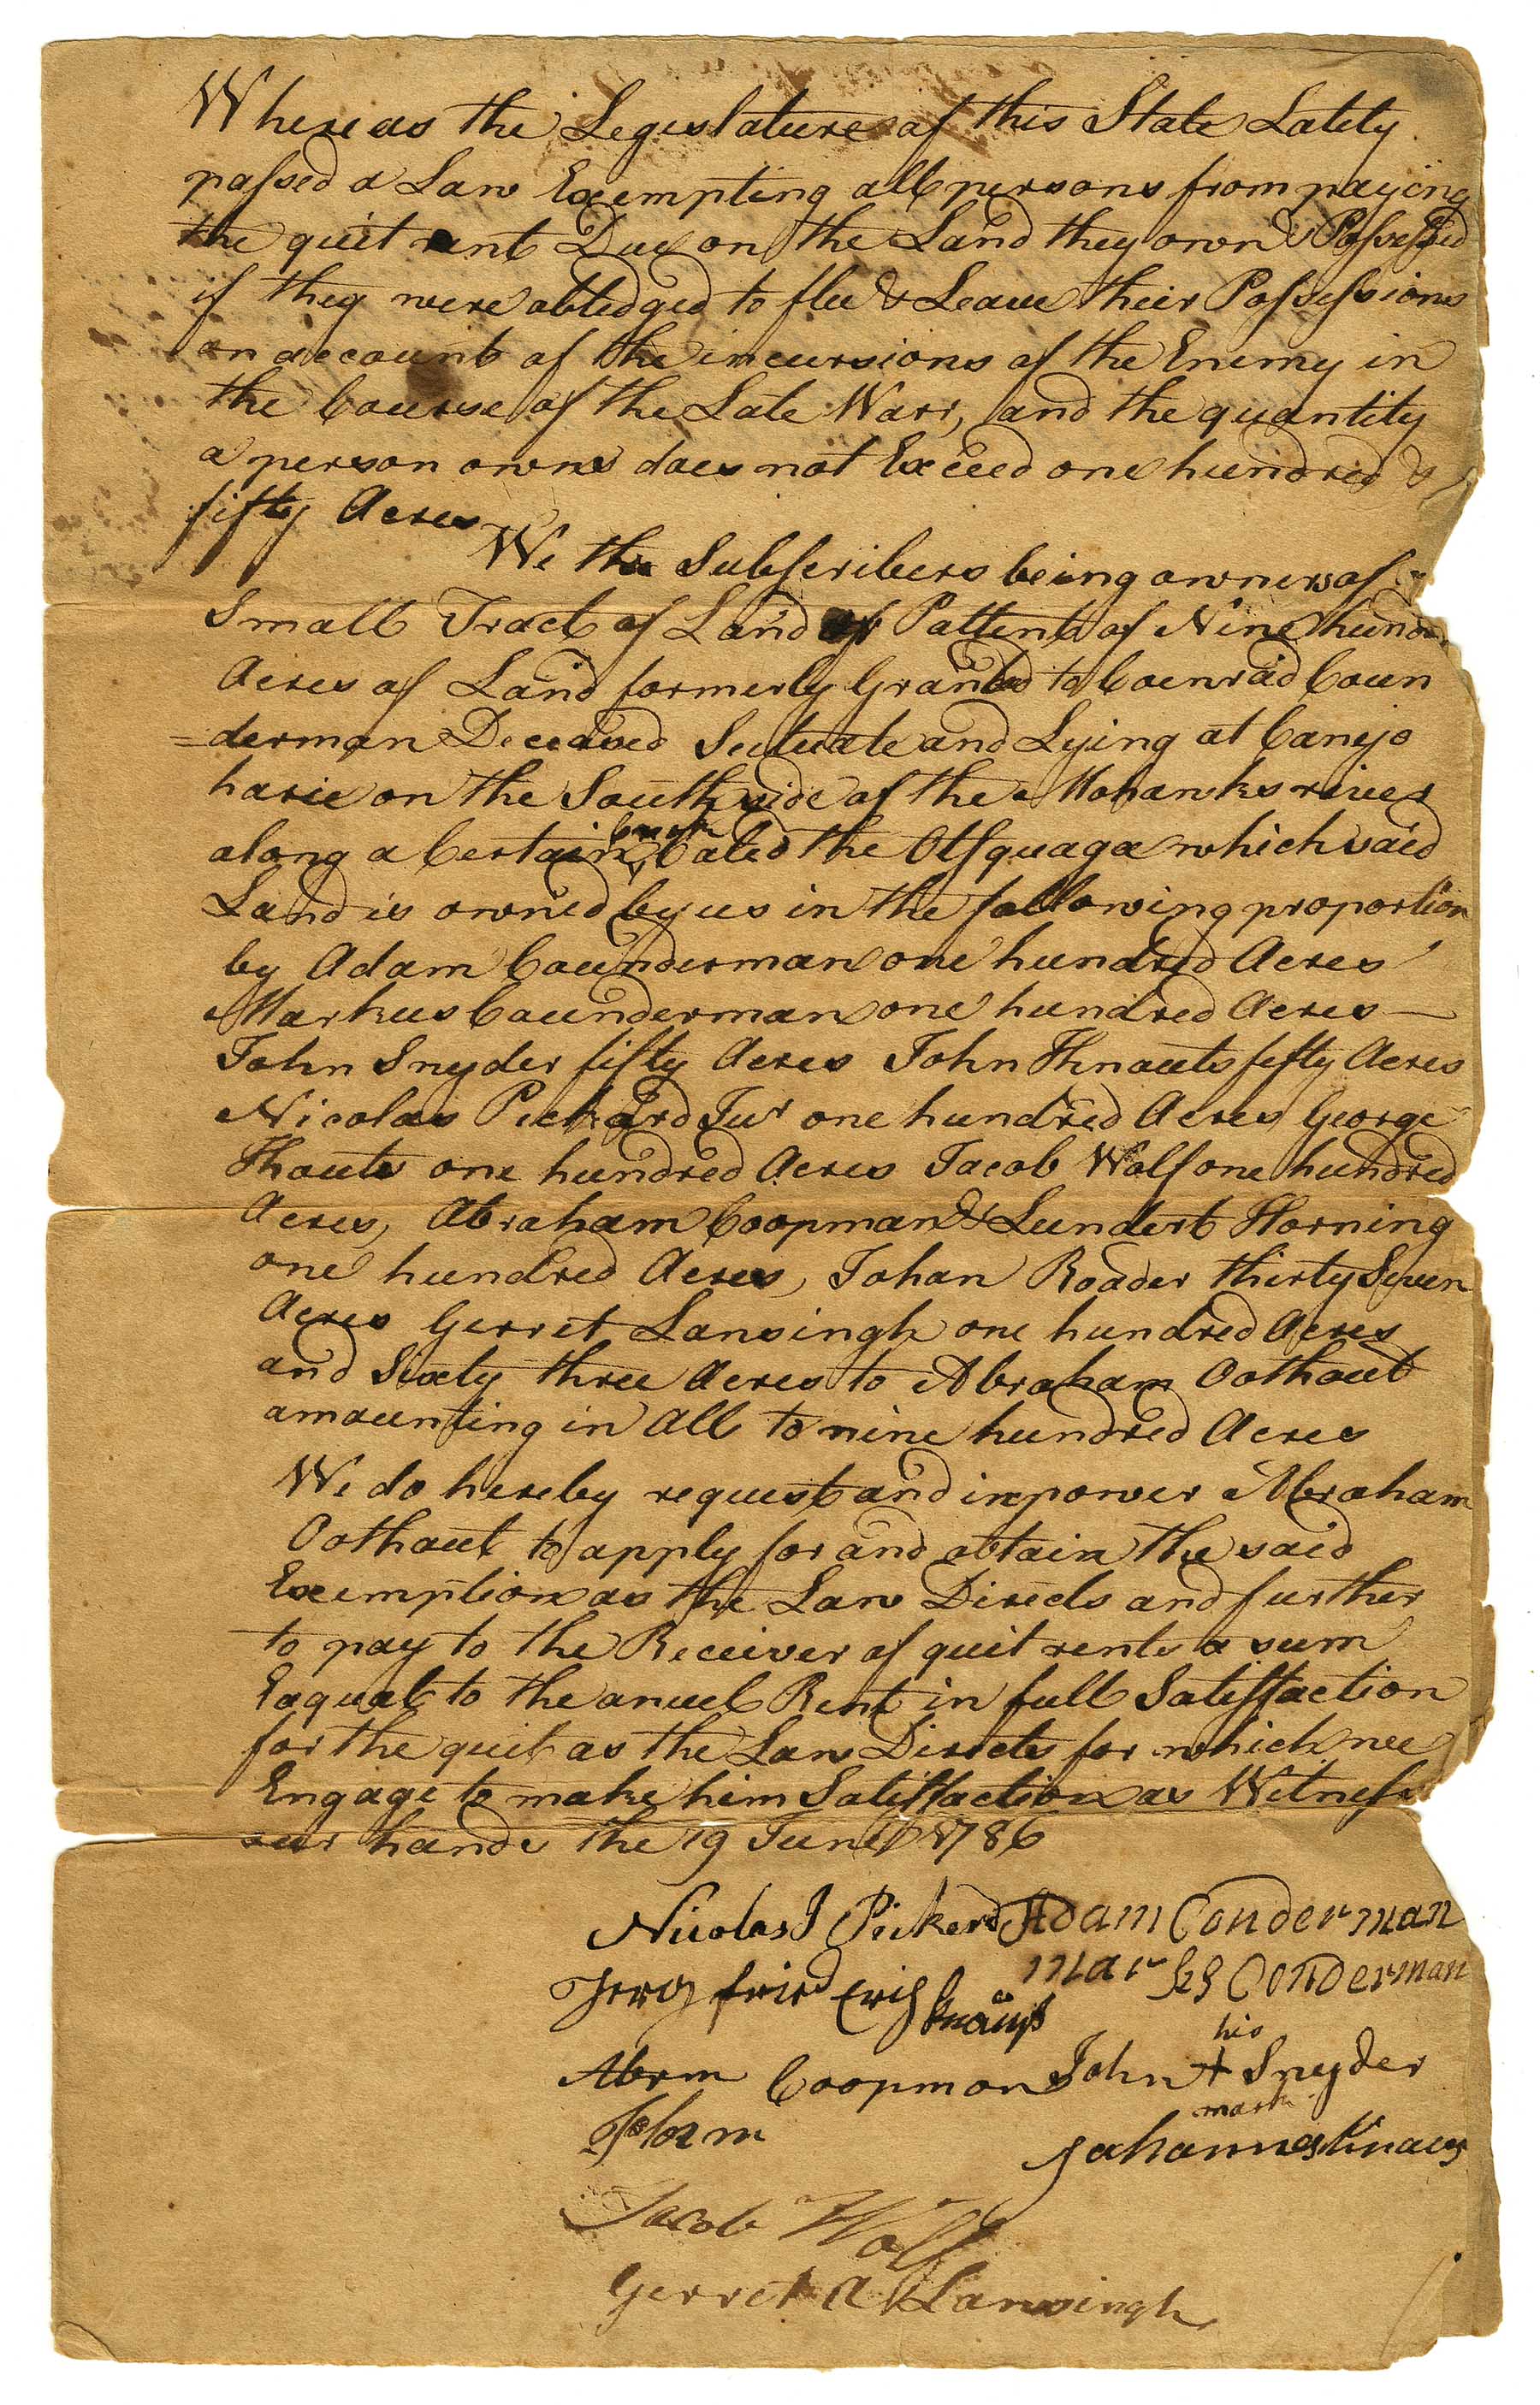 Whereas the Legislature of this State Lately
passed a Law Exempting all persons from paying
the quit rent Due on the Land they own & Possessed
if they were obledged to flee & Leave their Possessions
on account of the incursions of the Enemy in
the Course of the Late Warr, and the quantity
a person owns does not Exceed one hundred &
fifty Acres
We the Subscribers being owners of
Small Tract of Land or Pattent of Nine hundr
Acres of Land formerly Granted to Coenraid Coun
=derman Deceased Scituate and Lying at Canijo
harie on the South side of the Mohawks river
along a Certain Creek Caled the Otsquaga which said
Land is owned by us in the following proportion
by Adam Counderman one hundred Acres
Markus Counderman one hundred Acres —
John Snyder fifty Acres John Knauts fifty Acres
Nicolas Pickard Jur one hundred Acres George
Knauts one hundred Acres Jacob Wolf one hundred
Acres, Abraham Coopman & Lundert Horning
one hundred Acres, Johan Roader thirty Seven
Acres Gerret Lansingh one hundred Acres
and Sixty three Acres to Abraham Oothout
amounting in all to nine hundred Acres
We do hereby request and impower Abraham
Oothout to apply for and obtain the said
Exemption as the Law Directs and further
to pay to the Receiver of quit rents a sum
Eaqual to the anuel Rent in full Satisfaction
for the quit as the Law Directs for which we
Engage to make him Satisfaction as Witness
our hands the 19 June 1786
Nicolas J Pickerd Adam Conderman
Marks Conderman
his
Abrm Coopman John + Snyder
mark
Johannes Knaus
Jacob Wolf
Gerret A Lansingh